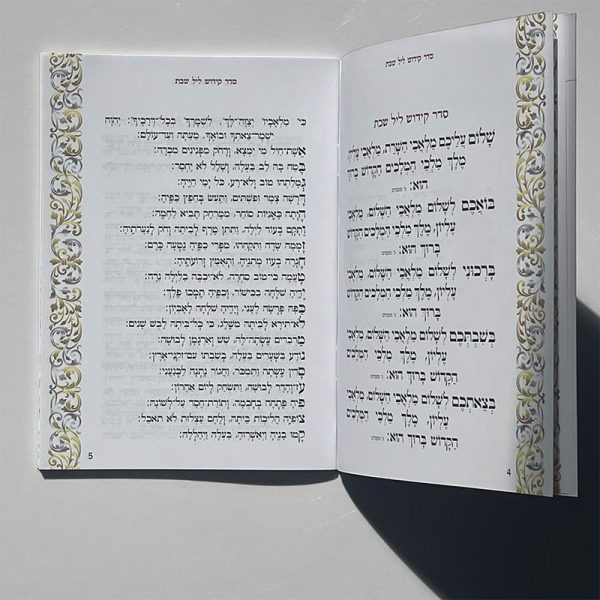 סדר קידוש ליל שבת
סדר קידוש ליל שבת
שָׁלוֹם עֲלֵיכֶם מַלְאֲכֵי הַשָּׁרֵת, מַלְאֲכֵי עֶלְיוֹן,
מֶלֶךְ מַלְכֵי הַמְּלָכִים הַקָּדוֹשׁ בָּרוּךְ
הוּא: ג׳ פעמים
בּוֹאֲכֶם לְשָׁלוֹם מַלְאֲכֵי הַשָּׁלוֹם, מַלְאֲכֵי
עֶלְיוֹן, מֶלֶךְ מַלְכֵי הַמְּלָכִים הַקָּדוֹשׁ
בָּרוּךְ הוּא: ג׳ פעמים
בָּרְכוּנִי לְשָׁלוֹם מַלְאֲכֵי הַשָּׁלוֹם, מַלְאֲכֵי
עֶלְיוֹן, מֶלֶךְ מַלְכֵי הַמְּלָכִים הַקָּדוֹשׁ
בָּרוּךְ הוּא: ג׳ פעמים
בְּשִׁבְתְּכֶם לְשָׁלוֹם מַלְאֲכֵי הַשָּׁלוֹם, מַלְאֲכֵי
עֶלְיוֹן, מֶלֶךְ מַלְכֵי הַמְּלָכִים
הַקָּדוֹשׁ בָּרוּךְ הוּא: ג׳ פעמים
בְּצֵאתְכֶם לְשָׁלוֹם מַלְאֲכֵי הַשָּׁלוֹם, מַלְאֲכֵי
עֶלְיוֹן, מֶלֶךְ מַלְכֵי הַמְּלָכִים
הַקָּדוֹשׁ בָּרוּךְ הוּא: ג׳ פעמים
4
סדר קידוש ליל שבת
כִּי מַלְאָכָיו יְצַוֶּה-לָּךְ, לִשְׁמָרְךָ בְּכָל-דְּרָכֶיךָ: יְהֹוָה
יִשְׁמָר-צֵאתְךָ וּבוֹאֶךָ, מֵעַתָּה וְעַד-עוֹלָם:
אֵשֶׁת-חַיִל מִי יִמְצָא, וְרָחֹק מִפְּנִינִים מִכְרָהּ:
בָּטַח בָּהּ לֵב בַּעְלָהּ, וְשָׁלָל לֹא יֶחְסָר:
גְּמָלַתְהוּ טוֹב וְלֹא-רָע, כֹּל יְמֵי חַיֶּיהָ:
דָּרְשָׁה צֶמֶר וּפִשְׁתִּים, וַתַּעַשׂ בְּחֵפֶץ כַּפֶּיהָ:
הָיְתָה כָּאֳנִיּוֹת סוֹחֵר, מִמֶּרְחָק תָּבִיא לַחְמָהּ:
וַתָּקָם בְּעוֹד לַיְלָה, וַתִּתֵּן טֶרֶף לְבֵיתָהּ וְחֹק לְנַעֲרֹתֶיהָ:
זָמְמָה שָׂדֶה וַתִּקָּחֵהוּ, מִפְּרִי כַפֶּיהָ נָטְעָה כָּרֶם:
חָגְרָה בְעוֹז מָתְנֶיהָ, וַתְּאַמֵּץ זְרוֹעֹתֶיהָ:
טָעֲמָה כִּי-טוֹב סַחְרָהּ, לֹא-יִכְבֶּה בַלַּיְלָה נֵרָהּ:
יָדֶיהָ שִׁלְּחָה בַכִּישׁוֹר, וְכַפֶּיהָ תָּמְכוּ פָלֶךְ:
כַּפָּהּ פָּרְשָׂה לֶעָנִי, וְיָדֶיהָ שִׁלְּחָה לָאֶבְיוֹן:
לֹא-תִירָא לְבֵיתָהּ מִשָּׁלֶג, כִּי כָל-בֵּיתָהּ לָבֻשׁ שָׁנִים:
מַרְבַדִּים עָשְׂתָה-לָּהּ, שֵׁשׁ וְאַרְגָּמָן לְבוּשָׁהּ:
נוֹדָע בַּשְּׁעָרִים בַּעְלָהּ, בְּשִׁבְתּוֹ עִם-זִקְנֵי-אָרֶץ:
סָדִין עָשְׂתָה וַתִּמְכֹּר, וַחֲגוֹר נָתְנָה לַכְּנַעֲנִי:
עֹז-וְהָדָר לְבוּשָׁהּ, וַתִּשְׂחַק לְיוֹם אַחֲרוֹן:
פִּיהָ פָּתְחָה בְחָכְמָה, וְתוֹרַת-חֶסֶד עַל-לְשׁוֹנָהּ:
צוֹפִיָּה הֲלִיכוֹת בֵּיתָהּ, וְלֶחֶם עַצְלוּת לֹא תֹאכֵל:
קָמוּ בָנֶיהָ וַיְאַשְּׁרוּהָ, בַּעְלָהּ וַיְהַלְלָהּ:
5